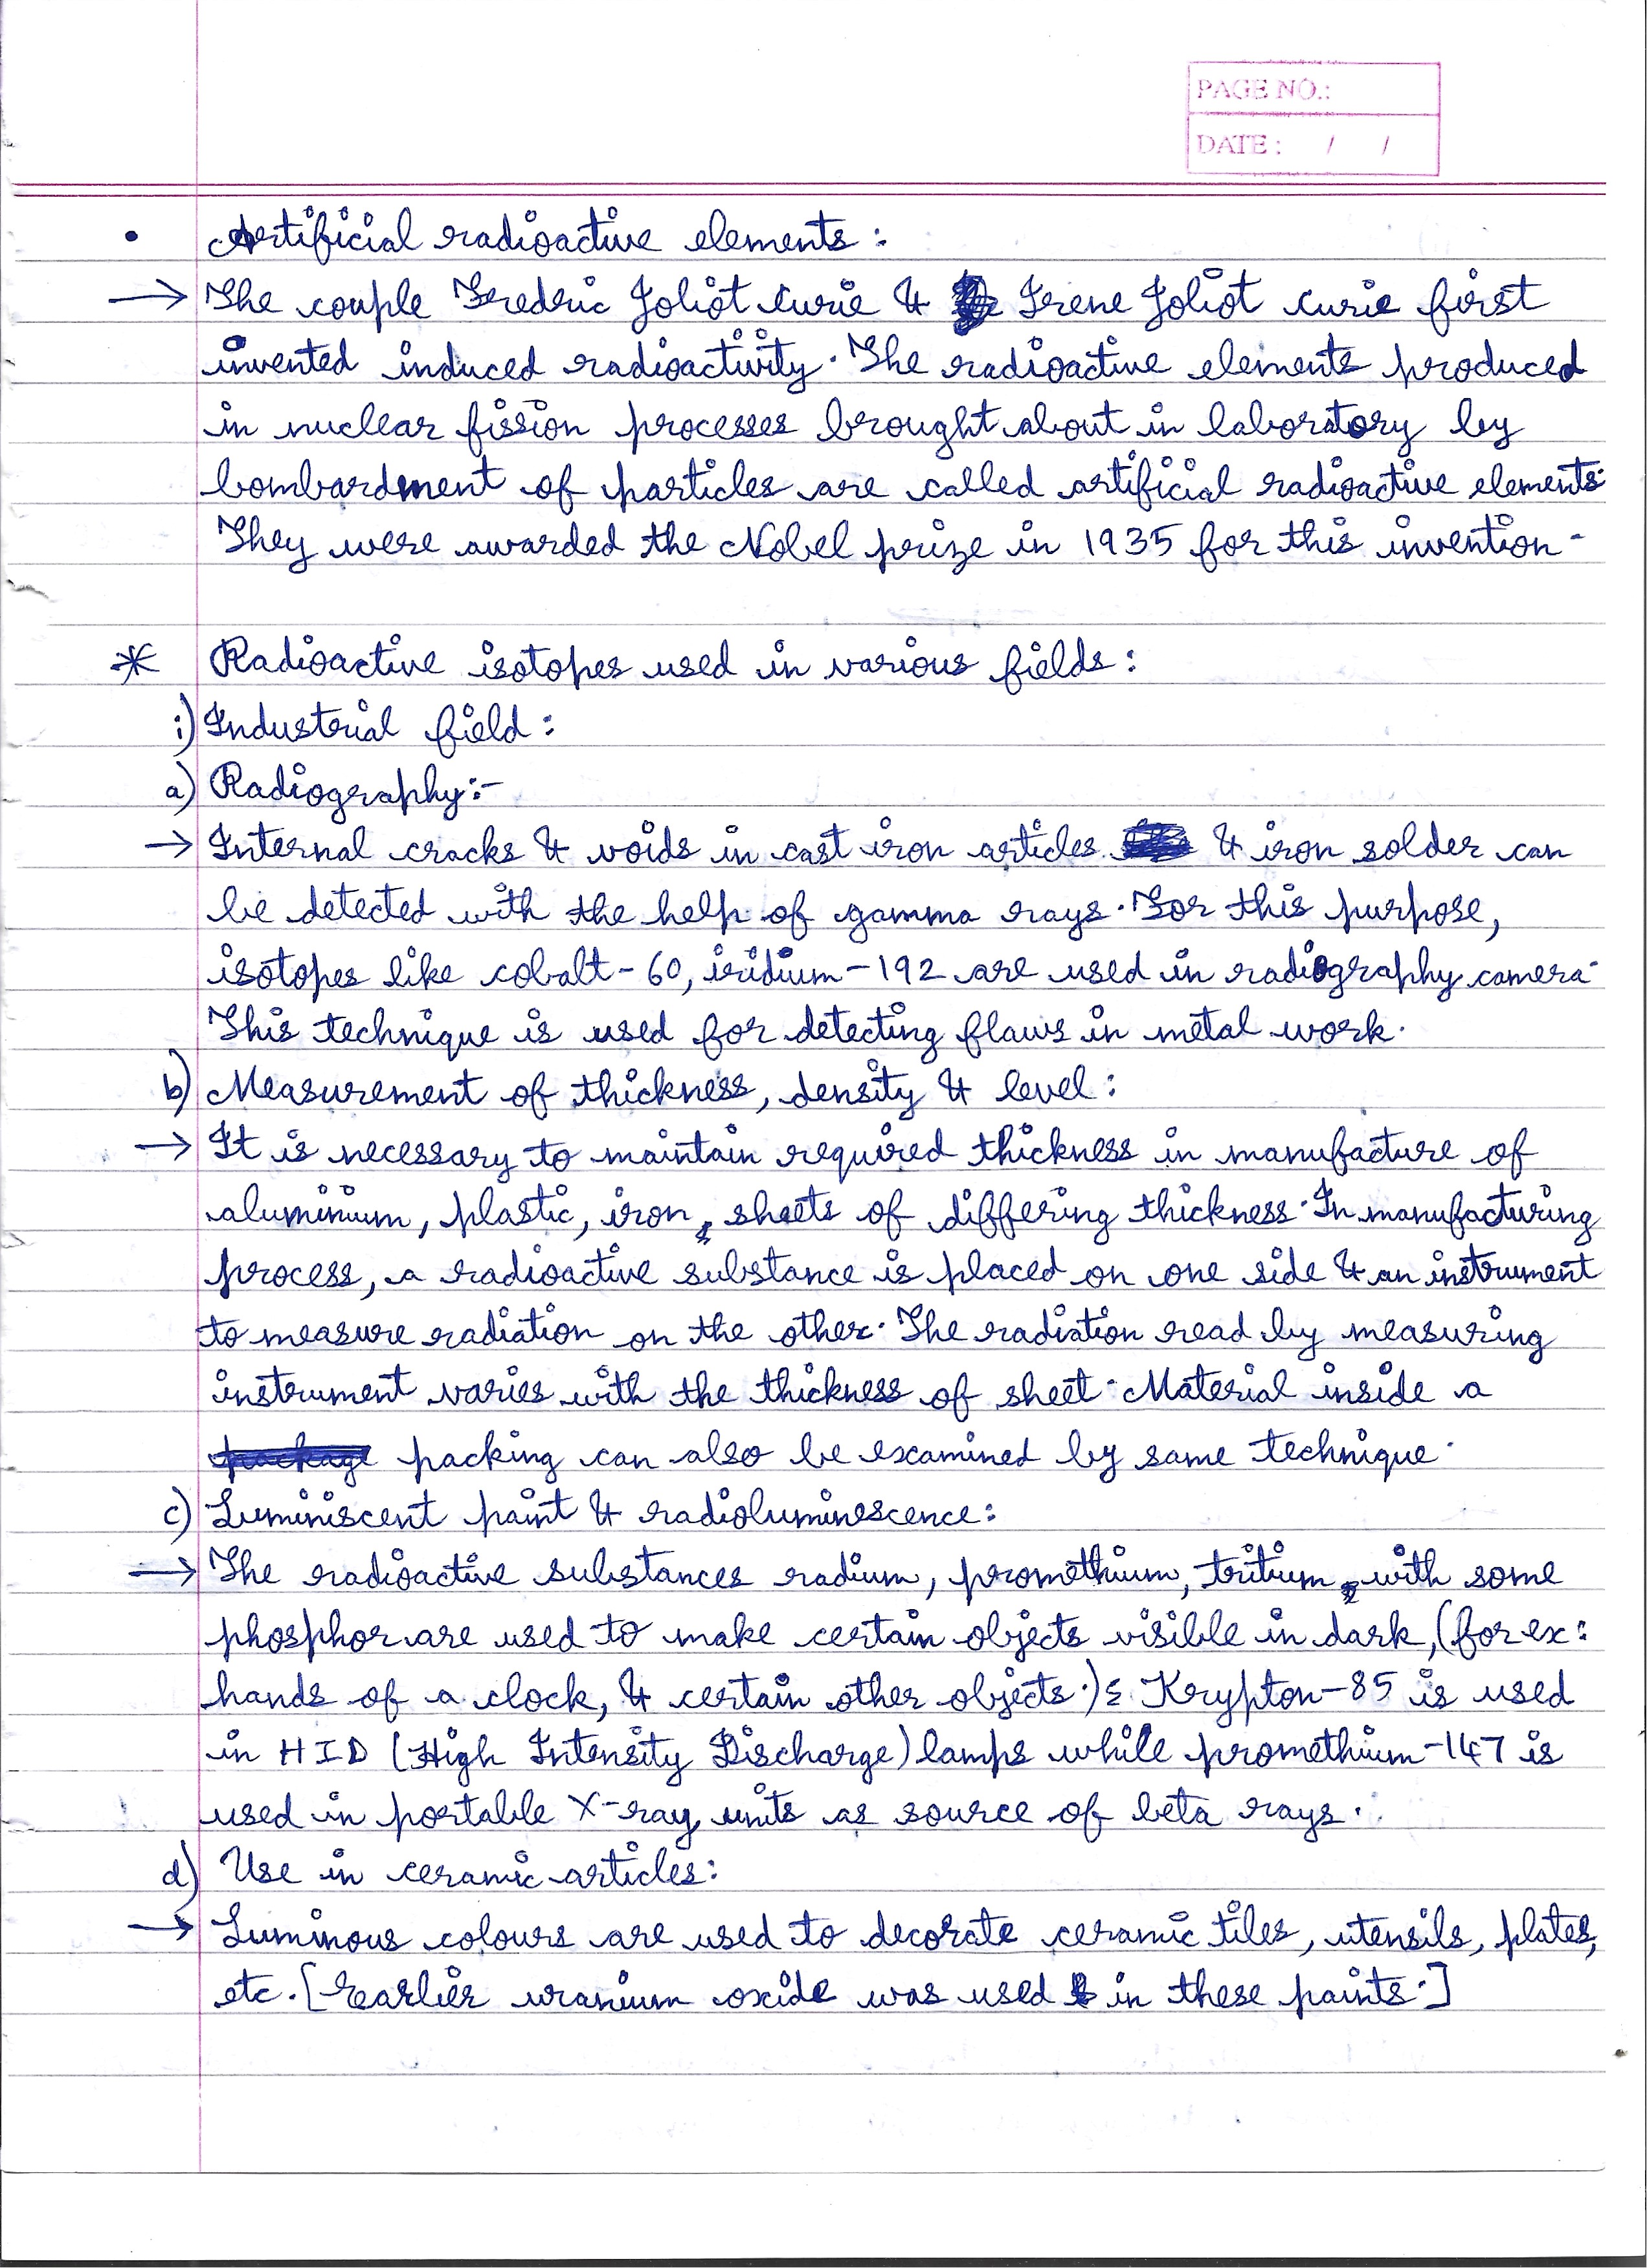 PAGE NO.:
DATE: / /
• Artificial radioactive elements:
→ The couple Frederic Joliot Curie & Irene Joliot Curie first
invented induced radioactivity. The radioactive elements produced
in nuclear fission processes brought about in laboratory by
bombardment of particles are called artificial radioactive elements.
They were awarded the Nobel prize in 1935 for this invention.
* Radioactive isotopes used in various fields:
i) Industrial field:
a) Radiography:-
→ Internal cracks & voids in cast iron articles & iron solder can
be detected with the help of gamma rays. For this purpose,
isotopes like cobalt-60, iridium-192 are used in radiography camera.
This technique is used for detecting flaws in metal work.
b) Measurement of thickness, density & level:
→ It is necessary to maintain required thickness in manufacture of
aluminium, plastic, iron, sheets of differing thickness. In manufacturing
process, a radioactive substance is placed on one side & an instrument
to measure radiation on the other. The radiation read by measuring
instrument varies with the thickness of sheet. Material inside a
package packing can also be examined by same technique.
c) Luminiscent paint & radioluminescence:
→ The radioactive substances radium, promethium, tritium, with some
phosphor are used to make certain objects visible in dark, (for ex:
hands of a clock, & certain other objects.) Krypton-85 is used
in HID (High Intensity Discharge) lamps while promethium-147 is
used in portable X-ray units as source of beta rays.
d) Use in ceramic articles:
→ Luminous colours are used to decorate ceramic tiles, utensils, plates,
etc. [Earlier uranium oxide was used in these paints.]